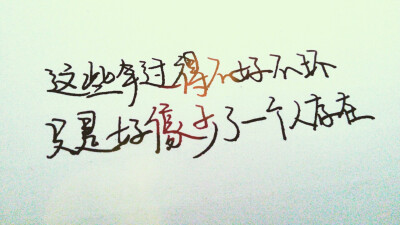 这些年过得不好不坏
只是好像少了一个人存在